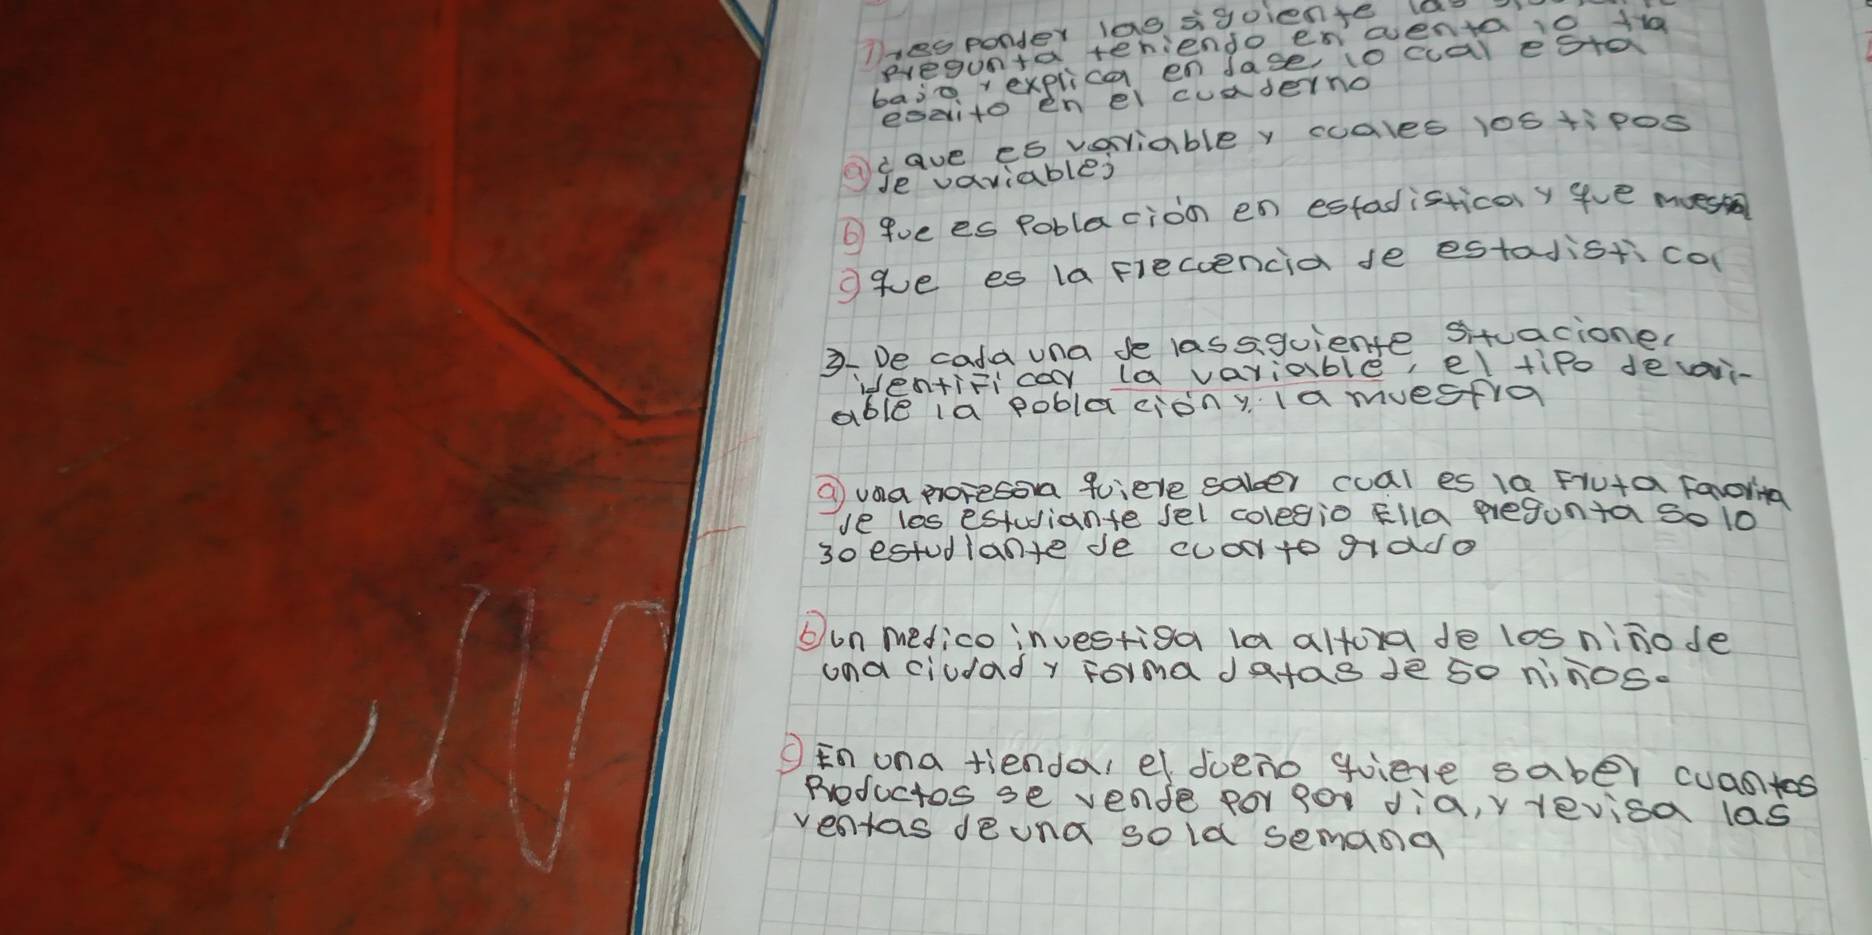 1) responder las siguiente las
pregunta teniendo en cuenta lo tra
bajo y explica en dase, lo cual esta
escrito en el cuaderno
a) ¿que es variable y cuales los tipos
de variable?
b) que es poblacion en estadistica y que muestra
c) que es la Frecuencia de estadistica
3- De cada una de las siguiente situaciones
identificar la variable, el tipo de vari-
able la poblacion y la muestra
a) una profesora quiere saber cual es la Fruta Favorita
de los estudiante del colegio Ella pregunta solo
30 estudiante de cuarto grado
b) un medico investiga la altura de los niño de
una ciudad y Forma datas de 50 niños.
c) En una tienda, el dueño quiere saber cuantos
Productos se vende por por dia, y revisa las
ventas de una sola semana